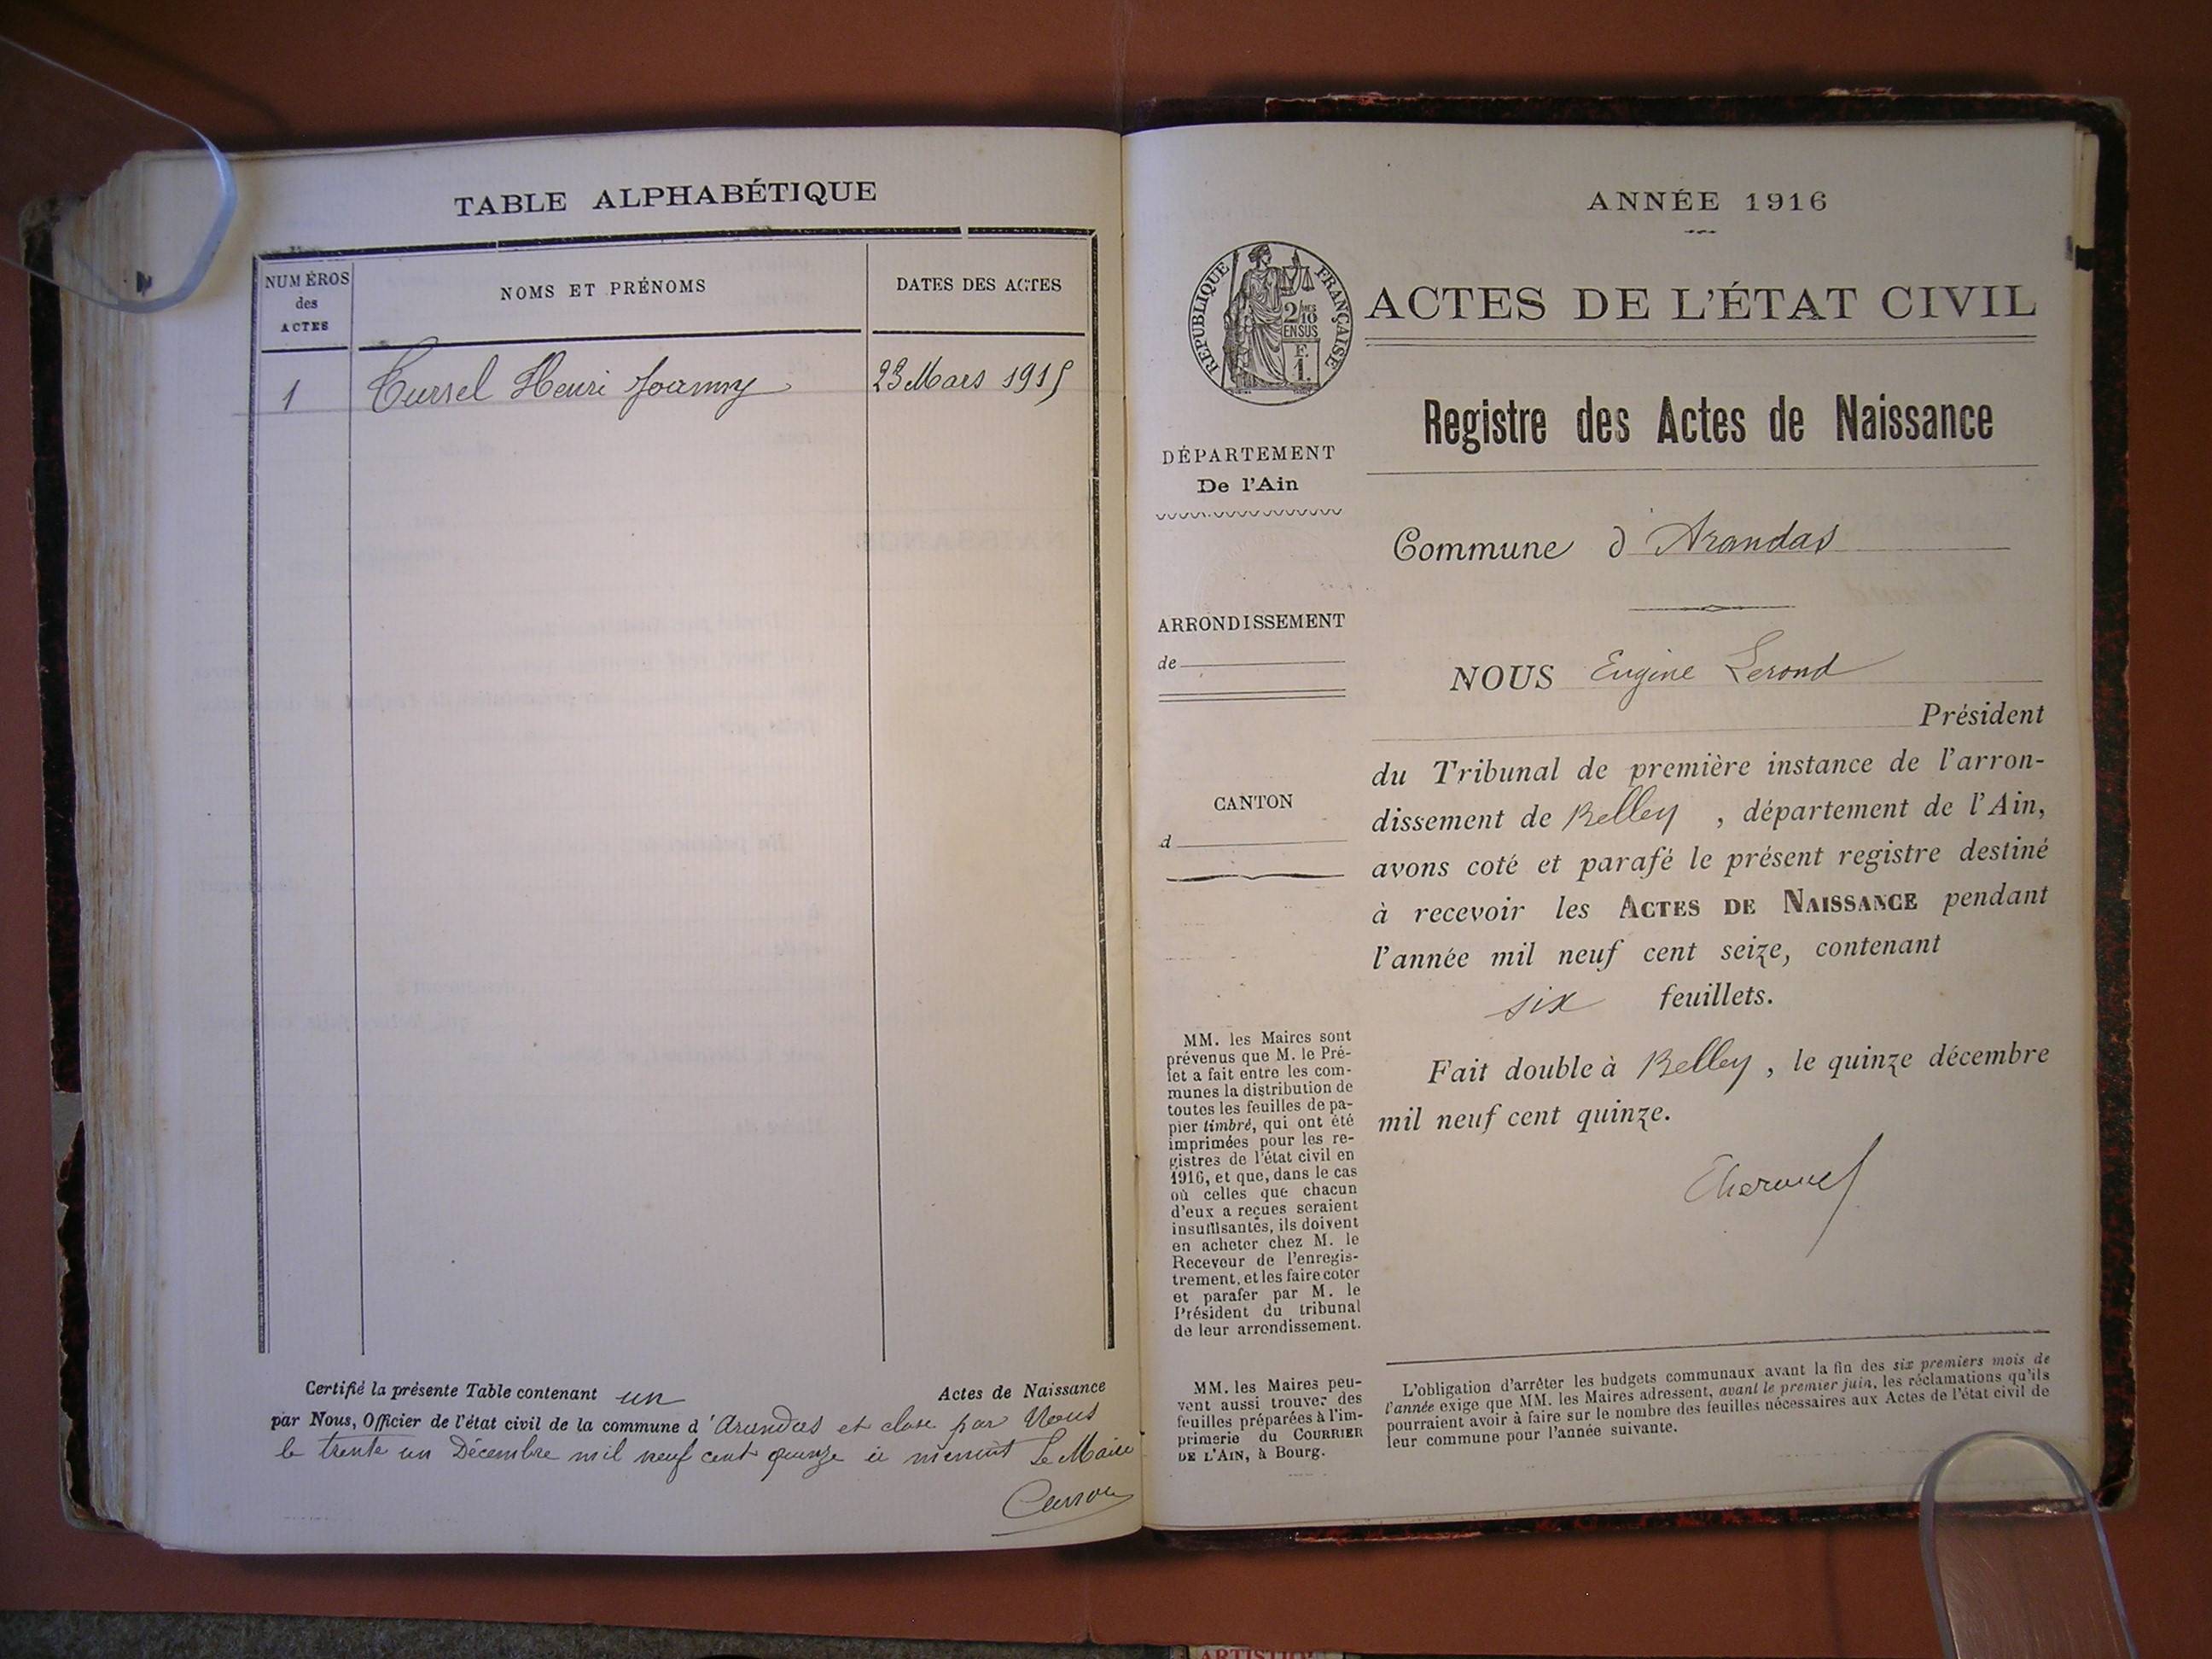 TABLE ALPHABÉTIQUE
NUMÉROS
des
ACTES
NOMS ET PRÉNOMS
DATES DES ACTES
1 Cursel Henri Joanny 23 Mars 1915
Certifié la présente Table contenant un Actes de Naissance
par Nous, Officier de l'état civil de la commune d'Arandas et close par Nous
le trente un Décembre mil neuf cent quinze à minuit Le Maire
ANNÉE 1916
RÉPUBLIQUE FRANÇAISE
2/10 MES
EN SUS
F.
1.
ACTES DE L'ÉTAT CIVIL
Registre des Actes de Naissance
DÉPARTEMENT
De l'Ain
Commune d'Arandas
ARRONDISSEMENT
de
NOUS Eugène Lerond
Président
du Tribunal de première instance de l'arron-
dissement de Belley, département de l'Ain,
avons coté et parafé le présent registre destiné
à recevoir les ACTES DE NAISSANCE pendant
l'année mil neuf cent seize, contenant
six feuillets.
Fait double à Belley, le quinze décembre
mil neuf cent quinze.
CANTON
d
MM. les Maires sont
prévenus que M. le Pré-
fet a fait entre les com-
munes la distribution de
toutes les feuilles de pa-
pier timbré, qui ont été
imprimées pour les re-
gistres de l'état civil en
1916, et que, dans le cas
où celles que chacun
d'eux a reçues seraient
insuffisantes, ils doivent
en acheter chez M. le
Receveur de l'enregis-
trement, et les faire coter
et parafer par M. le
Président du tribunal
de leur arrondissement.
MM. les Maires peu-
vent aussi trouver des
feuilles préparées à l'im-
primerie du COURRIER
DE L'AIN, à Bourg.
L'obligation d'arrêter les budgets communaux avant la fin des six premiers mois de
l'année exige que MM. les Maires adressent, avant le premier juin, les réclamations qu'ils
pourraient avoir à faire sur le nombre des feuilles nécessaires aux Actes de l'état civil de
leur commune pour l'année suivante.